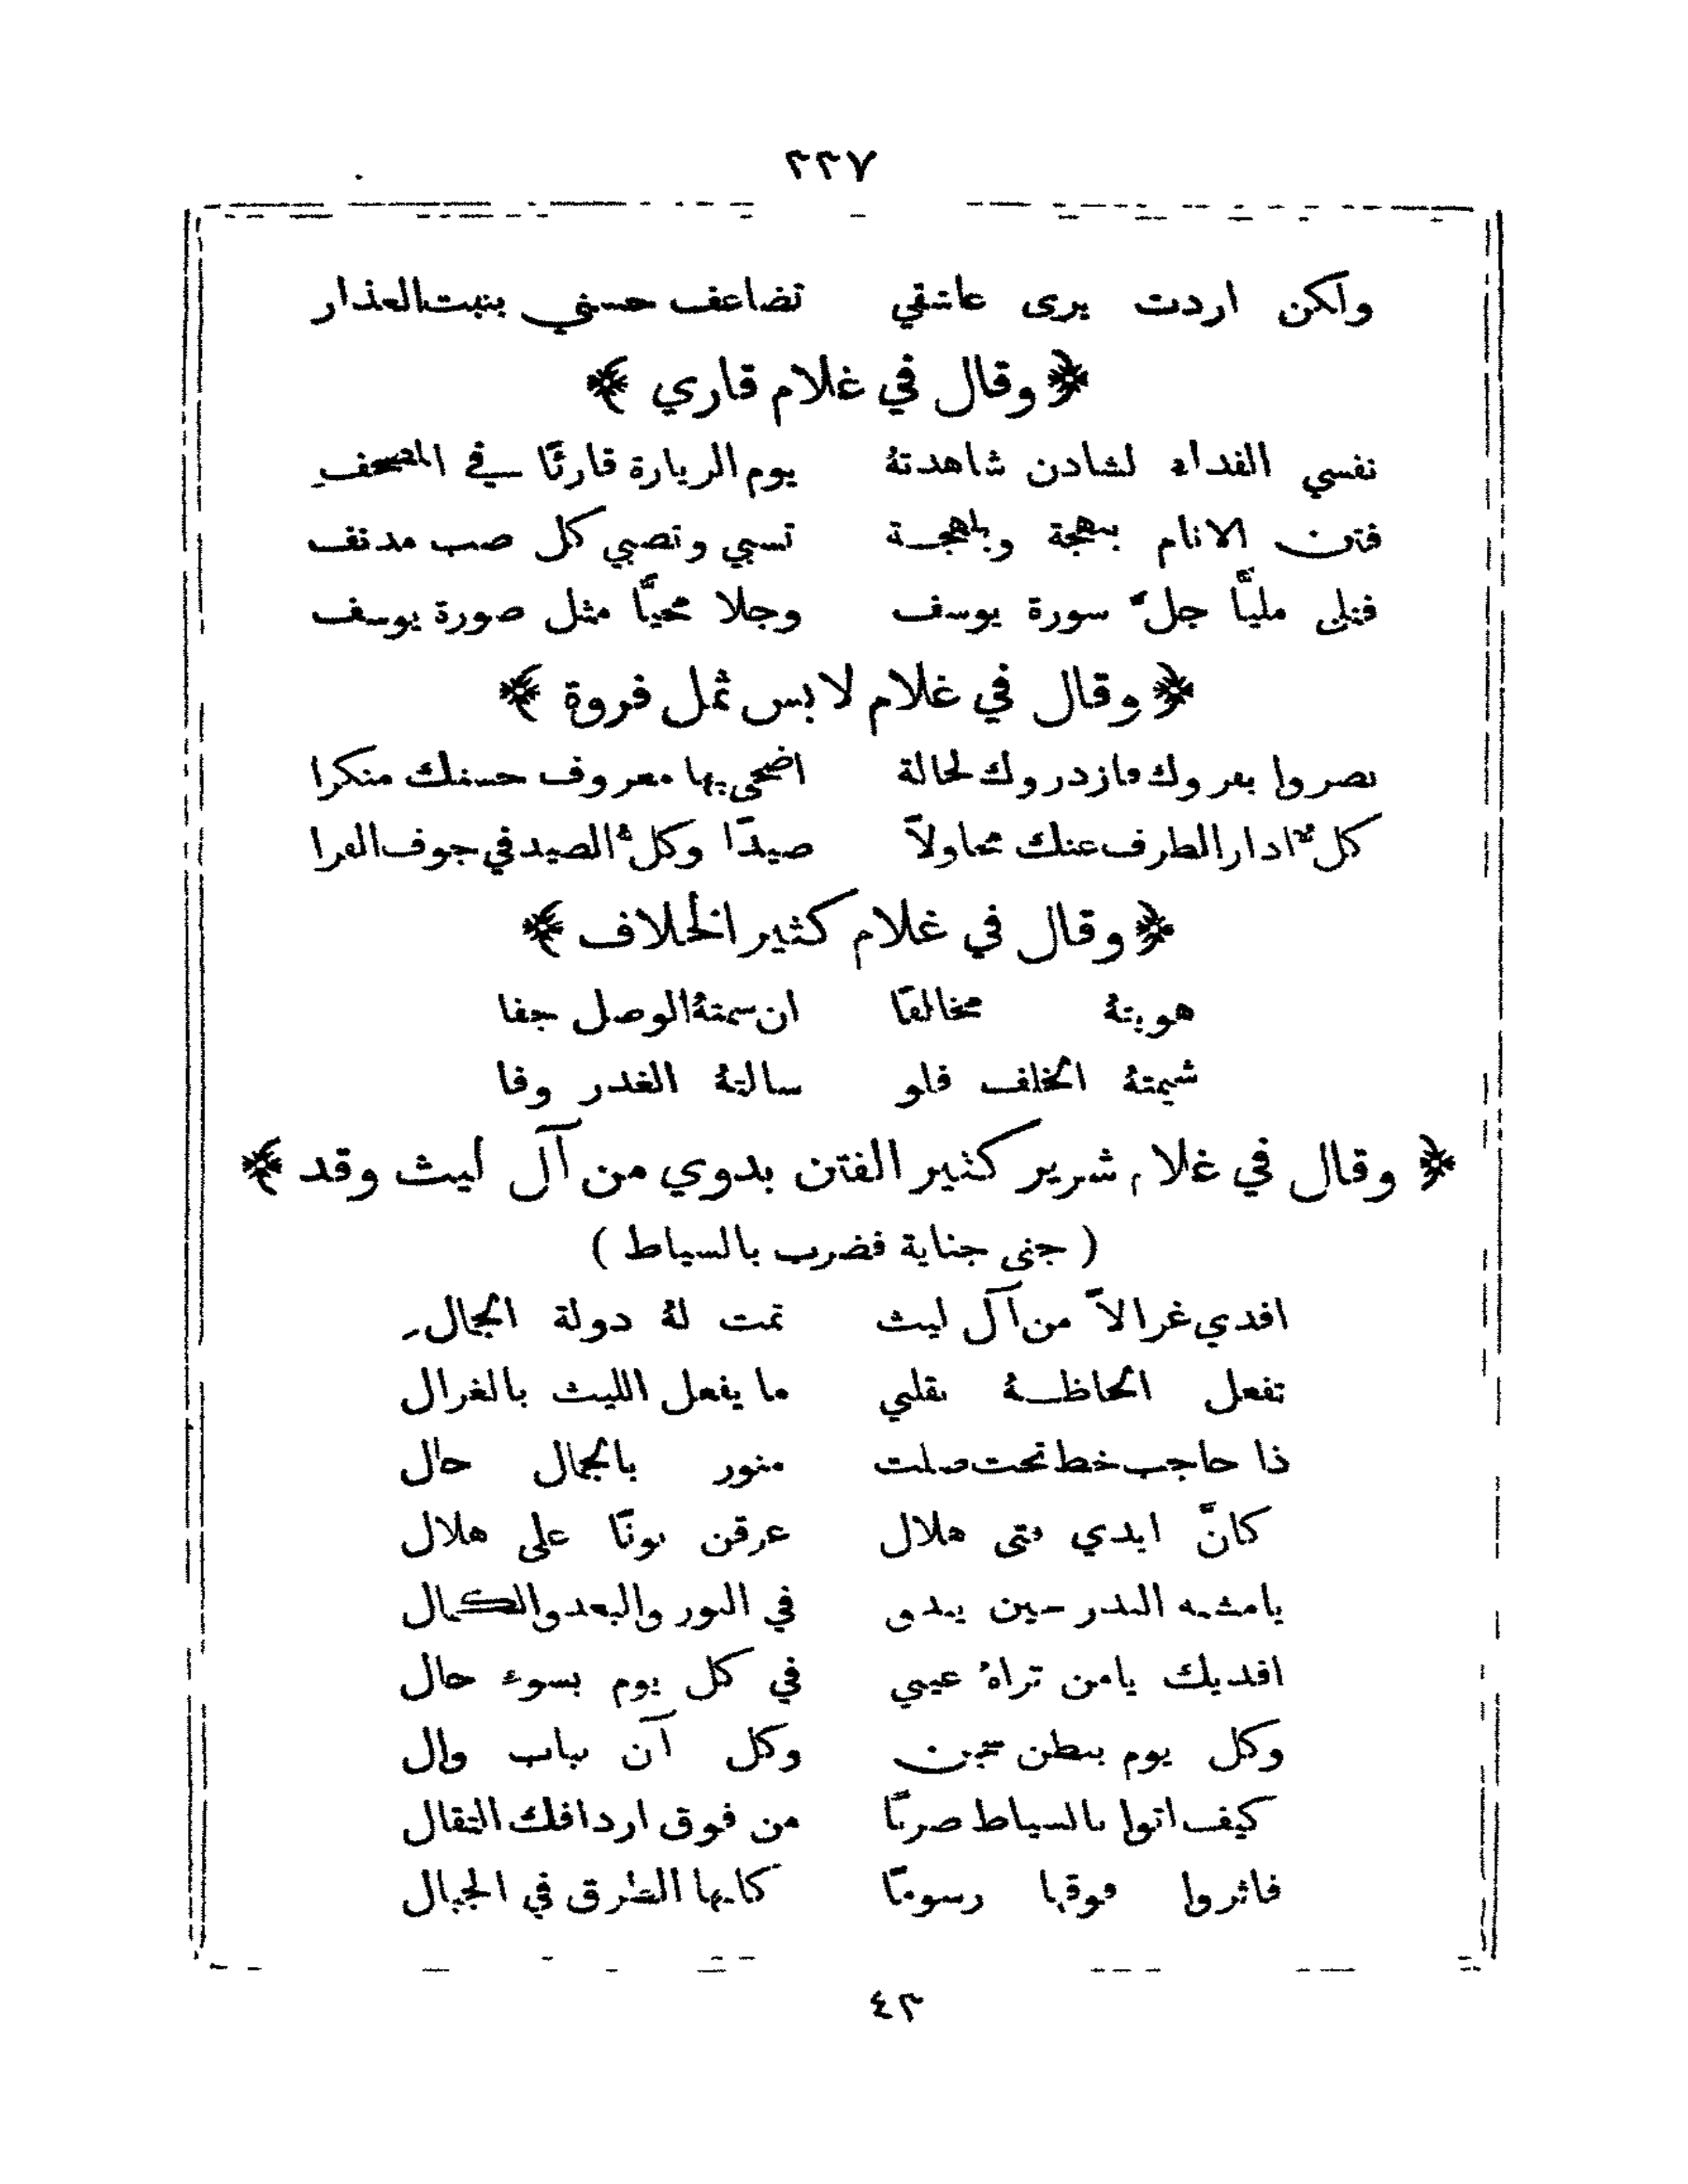 ٣٣٧
ولكن اردت يرى عاشقي تضاعف حسني بنبت العذار
﴿ وقال في غلام قاري ﴾
نفسي الفداء لشادن شاهدتهُ يوم الزيارة قارئًا في المصحف
فتن الانام ببهجة وبلهجة تسبي وتصبي كل صب مدنف
فتلى مليًّا جلّ سورة يوسف وجلا محيًّا مثل صورة يوسف
﴿ وقال في غلام لابس ثمل فروة ﴾
بصروا بفروك فازدروك لحالة اضحى بها معروف حسنك منكرا
كلٌّ ادار الطرف عنك محاولاً صيدًا وكلُّ الصيد في جوف الفرا
﴿ وقال في غلام كثير الخلاف ﴾
هويتهُ مخالفًا ان سمتهُ الوصل جفا
شيمتهُ الخلف فلو سالتهُ الغدر وفا
﴿ وقال في غلام شرير كثير الفتن بدوي من آل ليث وقد ﴾
( جنى جناية فضرب بالسياط )
افدي غزالاً من آل ليث تمت لهُ دولة الجمال
تفعل الحاظهُ بقلبي ما يفعل الليث بالغزال
ذا حاجب خط تحت صلت منور بالجمال حال
كانَّ ايدي فتى هلال عرقن نونًا على هلال
يا مشبه البدر حين يبدو في النور والبعد والكمال
افديك يا من تراهُ عيني في كل يوم بسوء حال
وكل يوم ببطن سجن وكل آن بباب وال
كيف اتوا بالسياط ضربًا من فوق اردافك الثقال
فاثروا فوقها رسومًا كانها الطرق في الجبال
٤٣